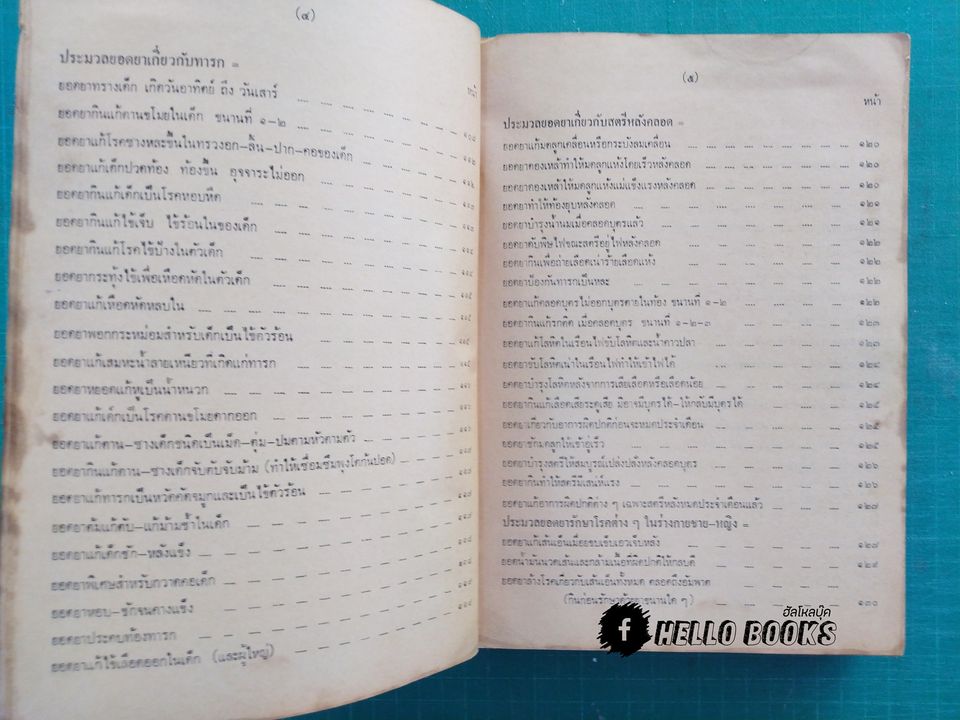 (๔)
ประมวลยอดยาเกี่ยวกับทารก =
หน้า
ยอดยาทรางเด็ก เกิดวันอาทิตย์ ถึง วันเสาร์
ยอดยากินแก้ตานขโมยในเด็ก ขนานที่ ๑-๒
ยอดยาแก้โรคซางหละขึ้นในทรวงอก-ลิ้น-ปาก-คอของเด็ก
ยอดยาแก้เด็กปวดท้อง ท้องขึ้น อุจจาระไม่ออก
ยอดยากินแก้เด็กเป็นโรคหอบหืด
ยอดยากินแก้ไข้เจ็บ ไข้ร้อนในของเด็ก
ยอดยากินแก้โรคไข้บ้างในตัวเด็ก
ยอดยากระทุ้งไข้เพื่อเหือดหัดในตัวเด็ก
ยอดยาแก้เหือดหัดหลบใน
ยอดยาพอกกระหม่อมสำหรับเด็กเป็นไข้ตัวร้อน
ยอดยาแก้เสมหะน้ำลายเหนียวที่เกิดแก่ทารก
ยอดยาหยอดแก้หูเป็นน้ำหนวก
ยอดยาแก้เด็กเป็นโรคตานขโมยดากออก
ยอดยาแก้ตาน-ซางเด็กชนิดเป็นเม็ด-ตุ่ม-ปมตามหัวตามตัว
ยอดยากินแก้ตาน-ซางเด็กจับตับจับม้าม (ทำให้เชื่อมซึมพุงโตก้นปอด)
ยอดยาแก้ทารกเป็นหวัดคัดจมูกและเป็นไข้ตัวร้อน
ยอดยาต้มแก้ตับ-แก้ม้ามช้ำในเด็ก
ยอดยาแก้เด็กชัก-หลังแข็ง
ยอดยาพิเศษสำหรับกวาดคอเด็ก
ยอดยาหอบ-ชักจนคางแข็ง
ยอดยาประคบท้องทารก
ยอดยาแก้ไข้เลือดออกในเด็ก (และผู้ใหญ่)
(๕)
หน้า
ประมวลยอดยาเกี่ยวกับสตรีหลังคลอด =
ยอดยาแก้มดลูกเคลื่อนหรือกระบังลมเคลื่อน ๑๒๐
ยอดยาดองเหล้าทำให้มดลูกแห้งโดยเร็วหลังคลอด ๑๒๐
ยอดยาดองเหล้าให้มดลูกแห้งแม่แข็งแรงหลังคลอด ๑๒๐
ยอดยาทำให้ท้องยุบหลังคลอด ๑๒๑
ยอดยาบำรุงน้ำนมเมื่อคลอดบุตรแล้ว ๑๒๑
ยอดยาดับพิษไฟขณะสตรีอยู่ไฟหลังคลอด ๑๒๒
ยอดยากินเพื่อถ่ายเลือดเน่าร้ายเลือดแห้ง ๑๒๒
ยอดยาป้องกันทารกเป็นหละ ๑๒๒
ยอดยาแก้คลอดบุตรไม่ออกบุตรตายในท้อง ขนานที่ ๑-๒ ๑๒๒
ยอดยากินแก้รกติด เมื่อคลอดบุตร ขนานที่ ๑-๒-๓ ๑๒๓
ยอดยาแก้โลหิตในเรือนไฟขับโลหิตและน้ำคาวปลา ๑๒๓
ยอดยาขับโลหิตเน่าในเรือนไฟทำให้เข้าไฟได้ ๑๒๔
ยอดยาบำรุงโลหิตหลังจากการเสียเลือดหรือเลือดน้อย ๑๒๔
ยอดยากินแก้เลือดเสียระดูเสีย มิอาจมีบุตรได้-ให้กลับมีบุตรได้ ๑๒๕
ยอดยาเกี่ยวกับอาการผิดปกติก่อนจะหมดประจำเดือน ๑๒๕
ยอดยาชักมดลูกให้เข้าอู่เร็ว ๑๒๕
ยอดยาบำรุงสตรีให้สมบูรณ์เปล่งปลั่งหลังคลอดบุตร ๑๒๖
ยอดยากินทำให้สตรีมีเสน่ห์แรง ๑๒๖
ยอดยาแก้อาการผิดปกติต่าง ๆ เฉพาะสตรีหลังหมดประจำเดือนแล้ว ๑๒๗
ประมวลยอดยารักษาโรคต่าง ๆ ในร่างกายชาย-หญิง =
ยอดยาแก้เส้นเอ็นเมื่อยขบเจ็บเอวเจ็บหลัง ๑๒๗
ยอดน้ำมันนวดเส้นและกล้ามเนื้อที่ผิดปกติให้กลับดี ๑๒๙
ยอดยาล้างโรคเกี่ยวกับเส้นเอ็นทั้งหมด ตลอดถึงอัมพาต
(กินก่อนรักษาด้วยยาขนานใด ๆ) ๑๓๐
ฮัลโหลบุ๊ค
f HELLO BOOKS